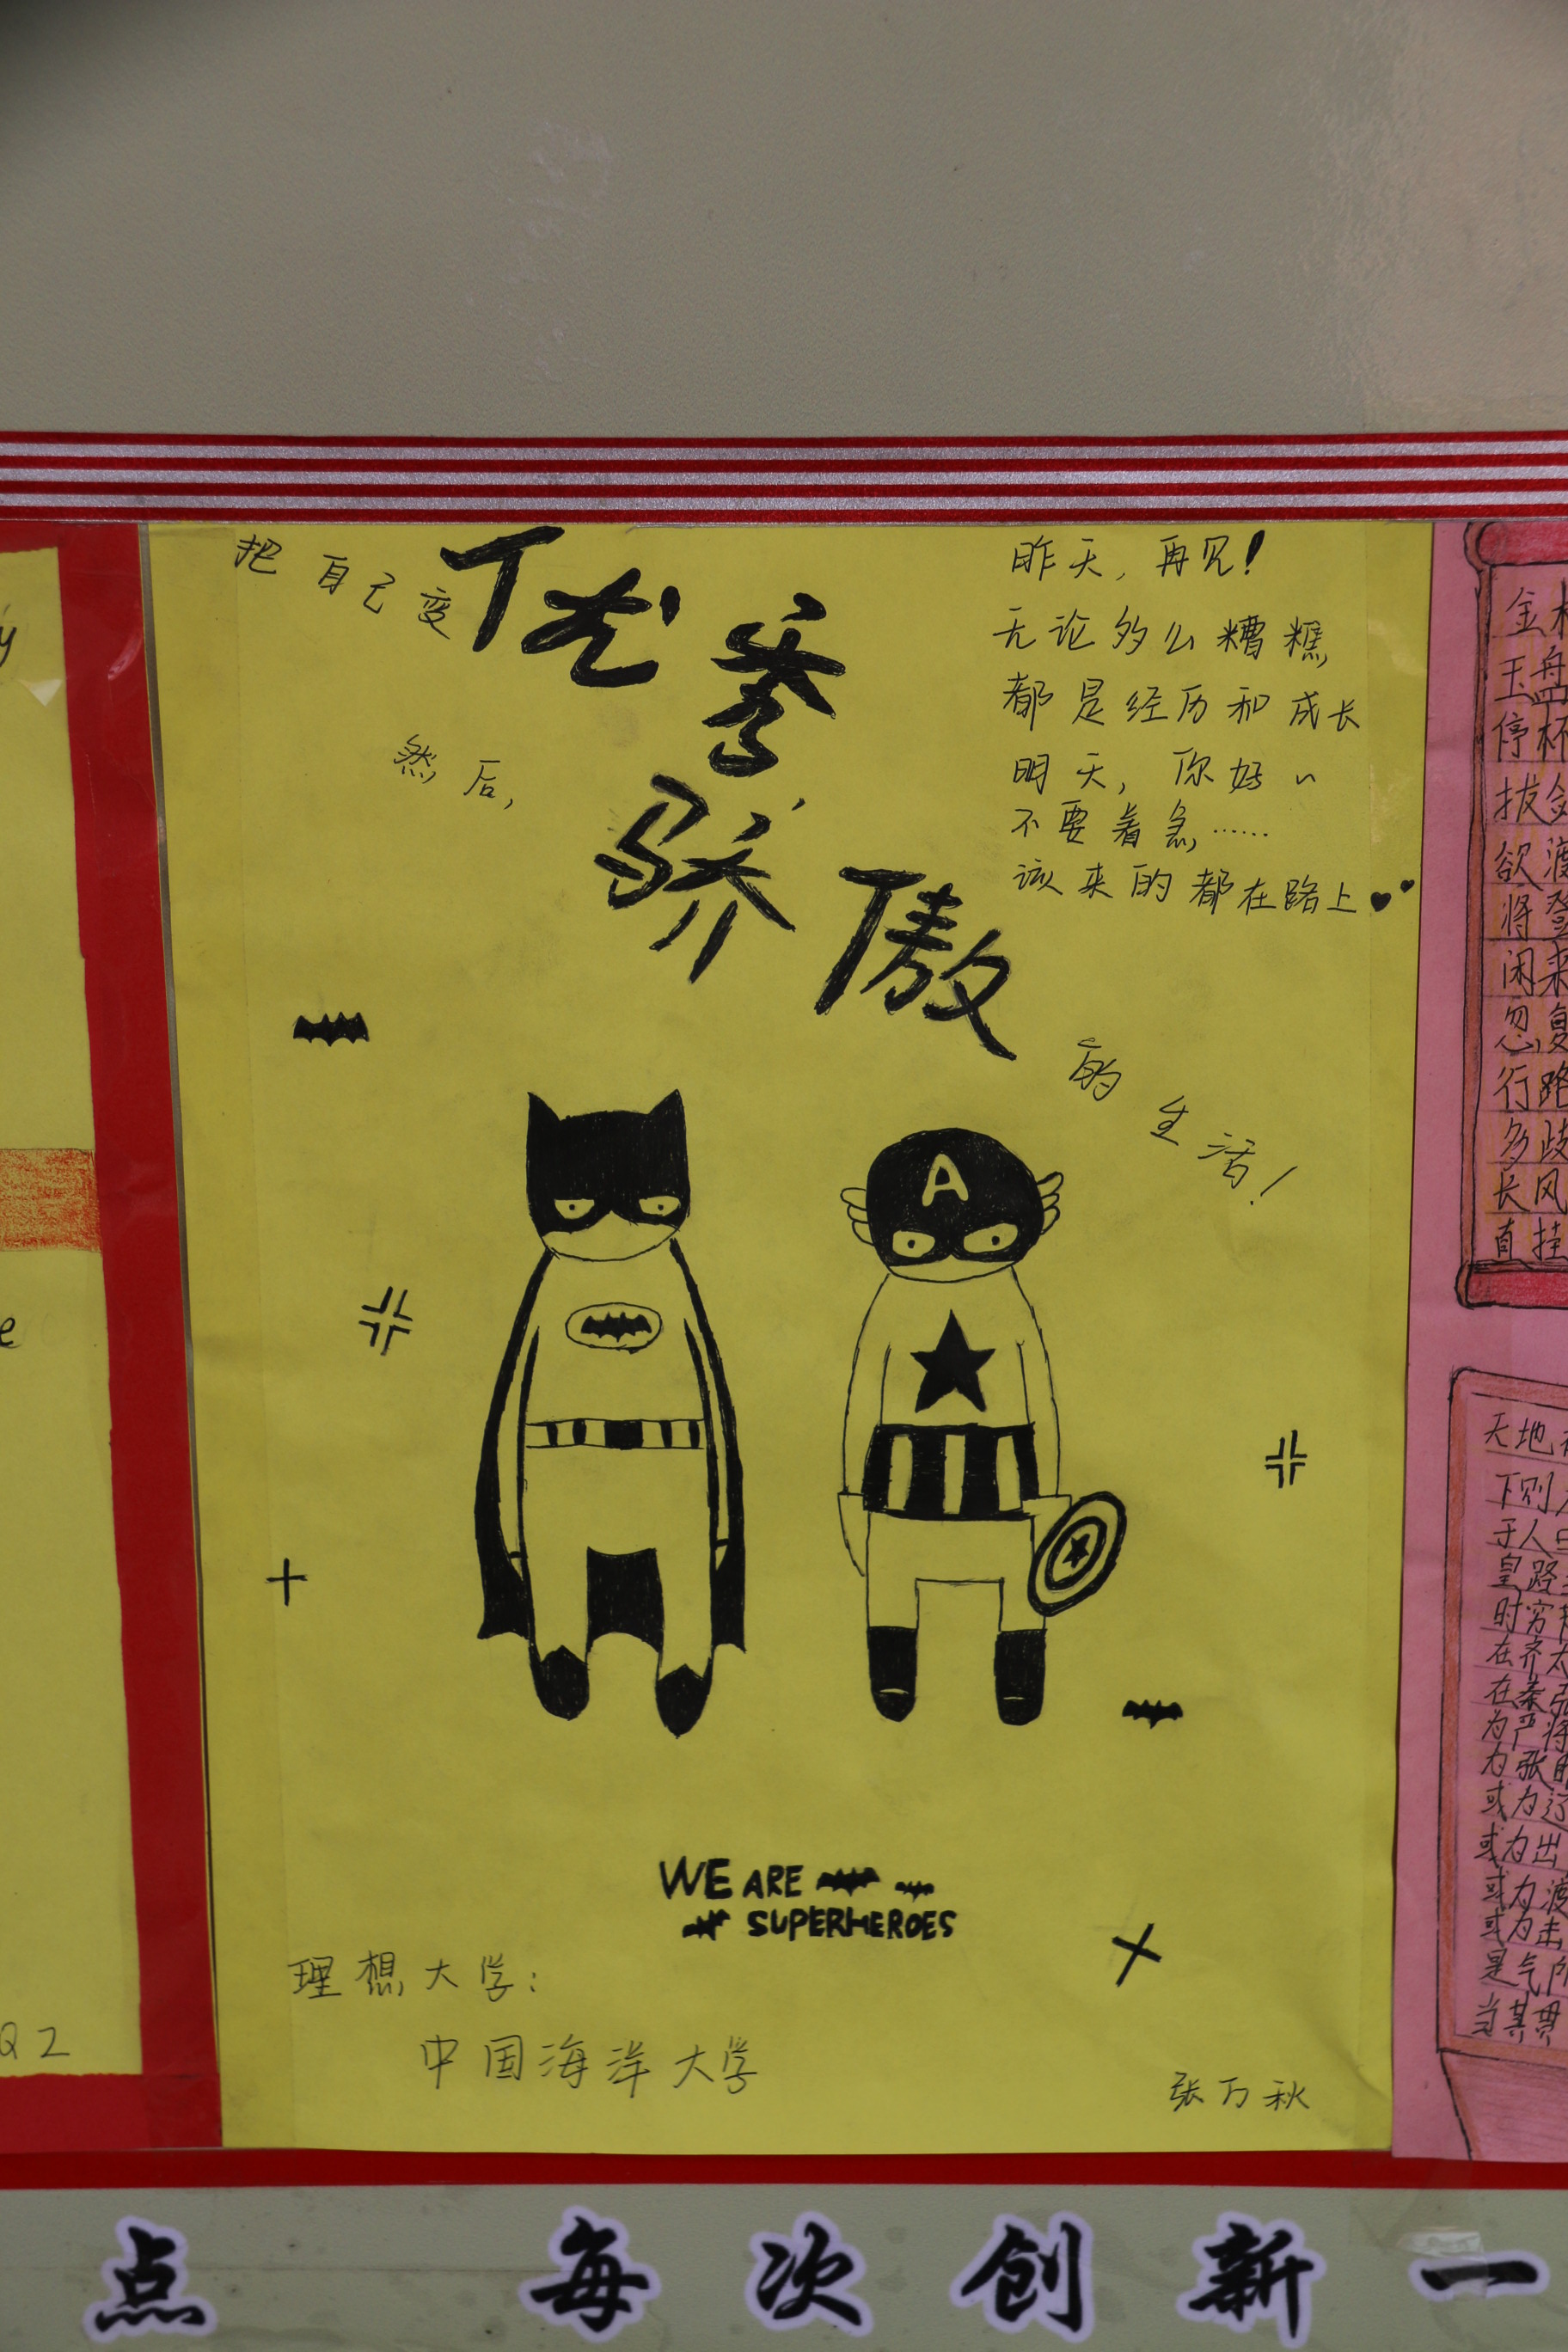 把自己变优秀,
然后,骄傲的生活!
昨天,再见!
无论多么糟糕,
都是经历和成长
明天,你好~
不要着急,……
该来的都在路上
A
WE ARE
SUPERHEROES
理想大学:
中国海洋大学
张万秋
y
e
Q2
金
玉盘
停杯
拔剑
欲渡
将登
闲来
忽复
行路
多歧
长风
直挂
天地
下则
于人
皇路
时穷
在齐太
在秦张
为严将
为张
或为辽
或为出
或为渡
或为击
是气所
当其贯
点 每次创新一